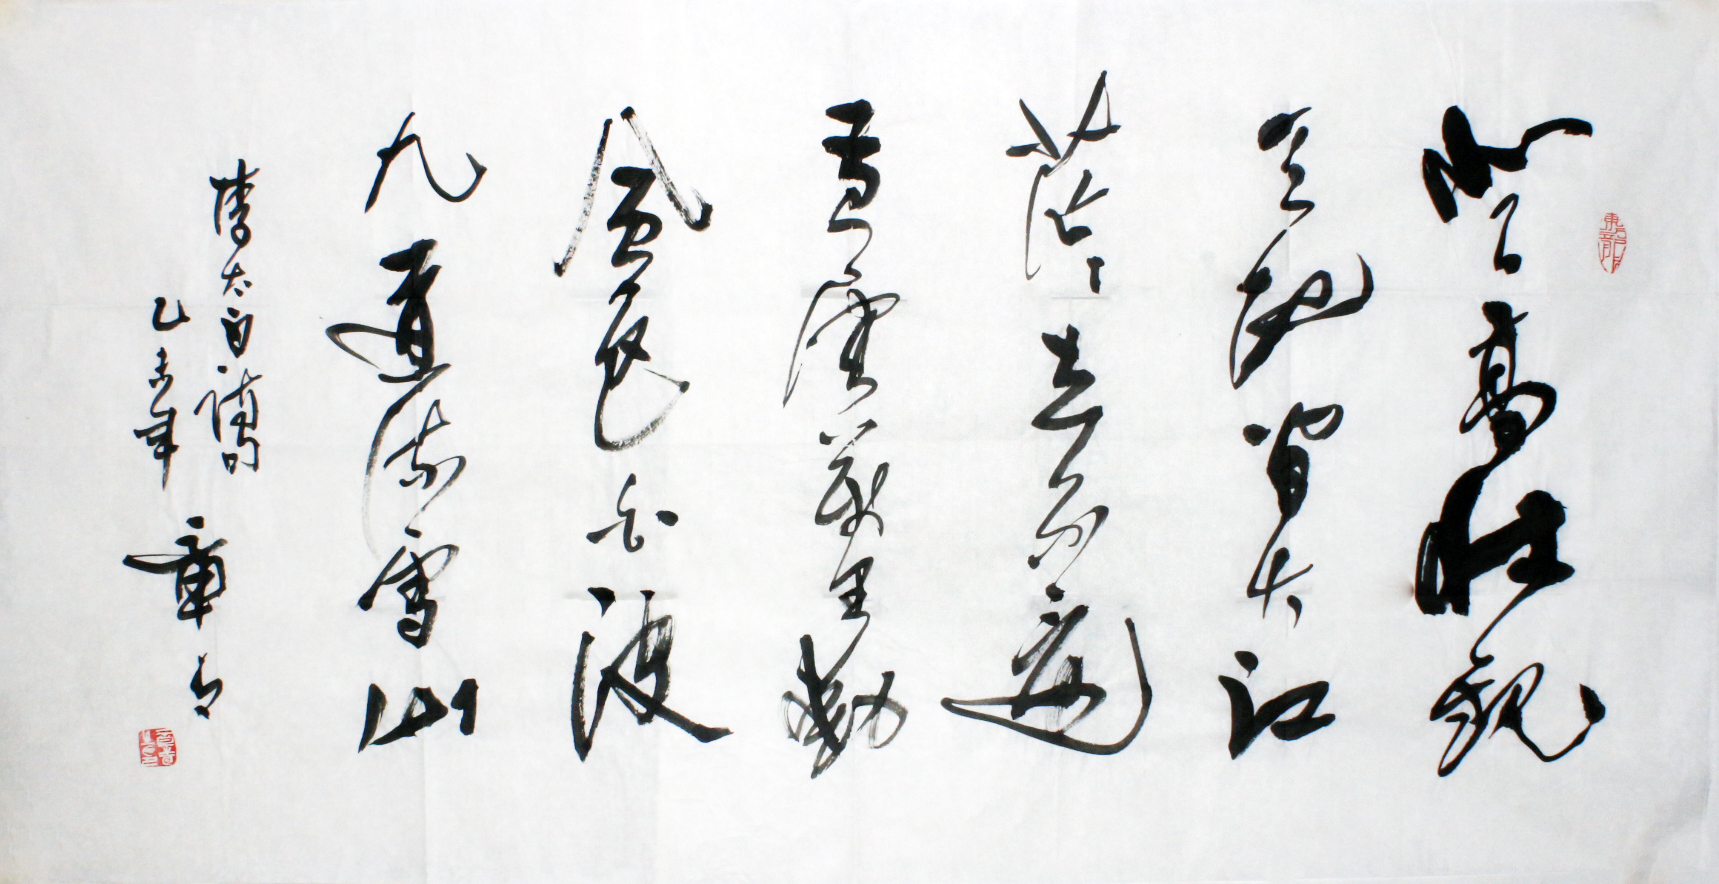 登高壮觀
天地間大江
茫茫去不還
黄雲萬里動
風色白波
九道流雪山
李太白詩句
乙未年 章